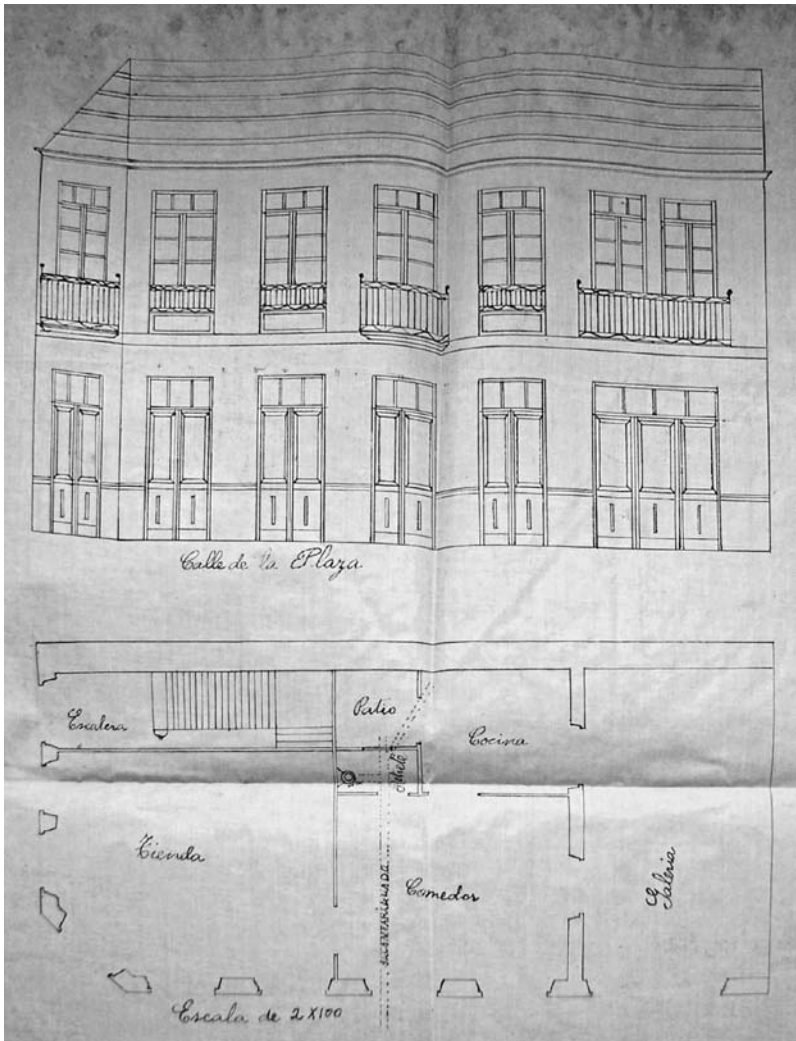 Calle de la Plaza.
Patio
Escalera
Cocina
Tienda
Comedor
Galeria
Escala de 2 X 100